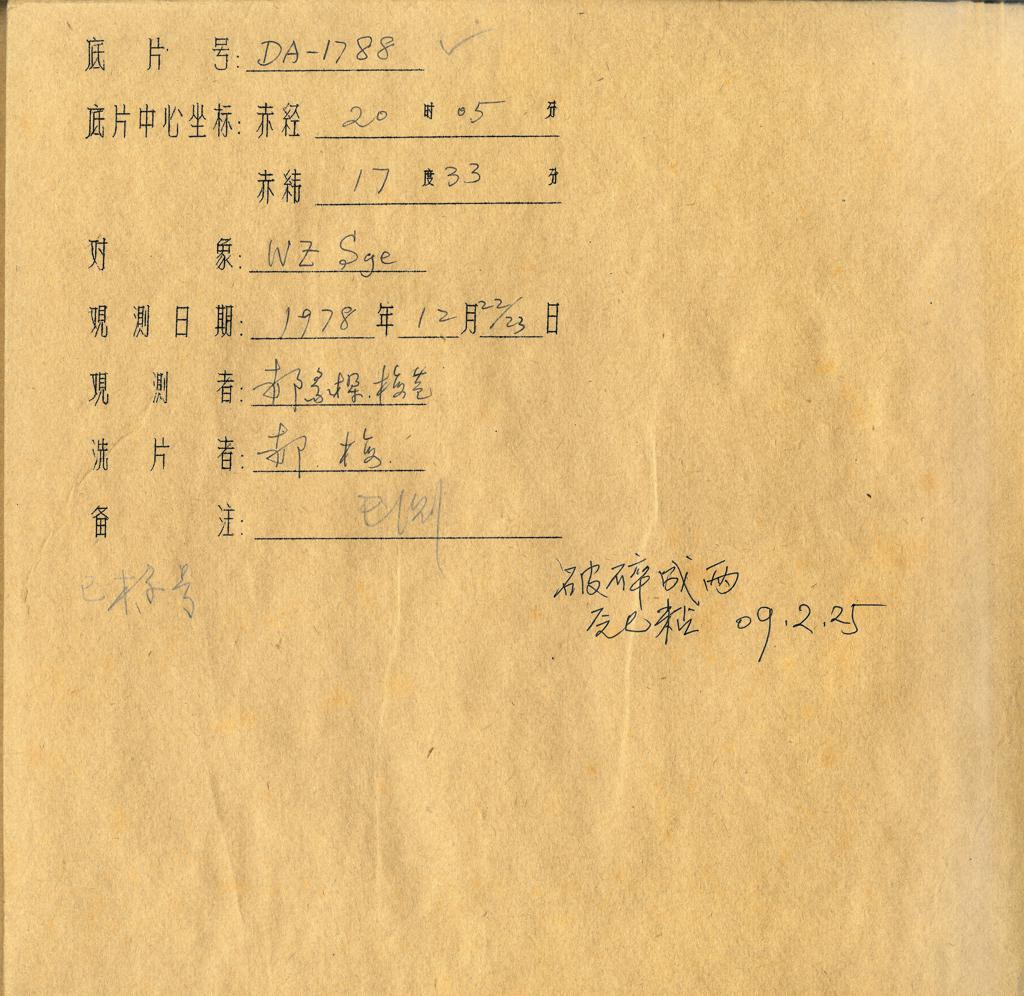 底片号: DA-1788 ✓
底片中心坐标: 赤经 20 时 05 分
赤纬 17 度 33 分
对象: WZ Sge
观测日期: 1978 年 12 月 22/23 日
观测者: 郝象樑.梅苞
洗片者: 郝.梅
备注: 已测
已标号
破碎成两
瓦已粘 09.2.25